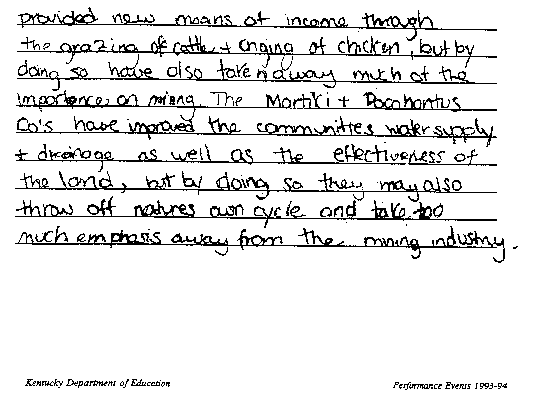 provided new means of income through
the grazing of cattle + cnging of chicken, but by
doing so have also taken away much of the
importance on mining. The Martiki + Pocahontus
Co's have improved the communities water supply
+ drainage as well as the effectiveness of
the land, but by doing so they may also
throw off natures own cycle and take too
much emphasis away from the mining industry.
Kentucky Department of Education
Performance Events 1993-94